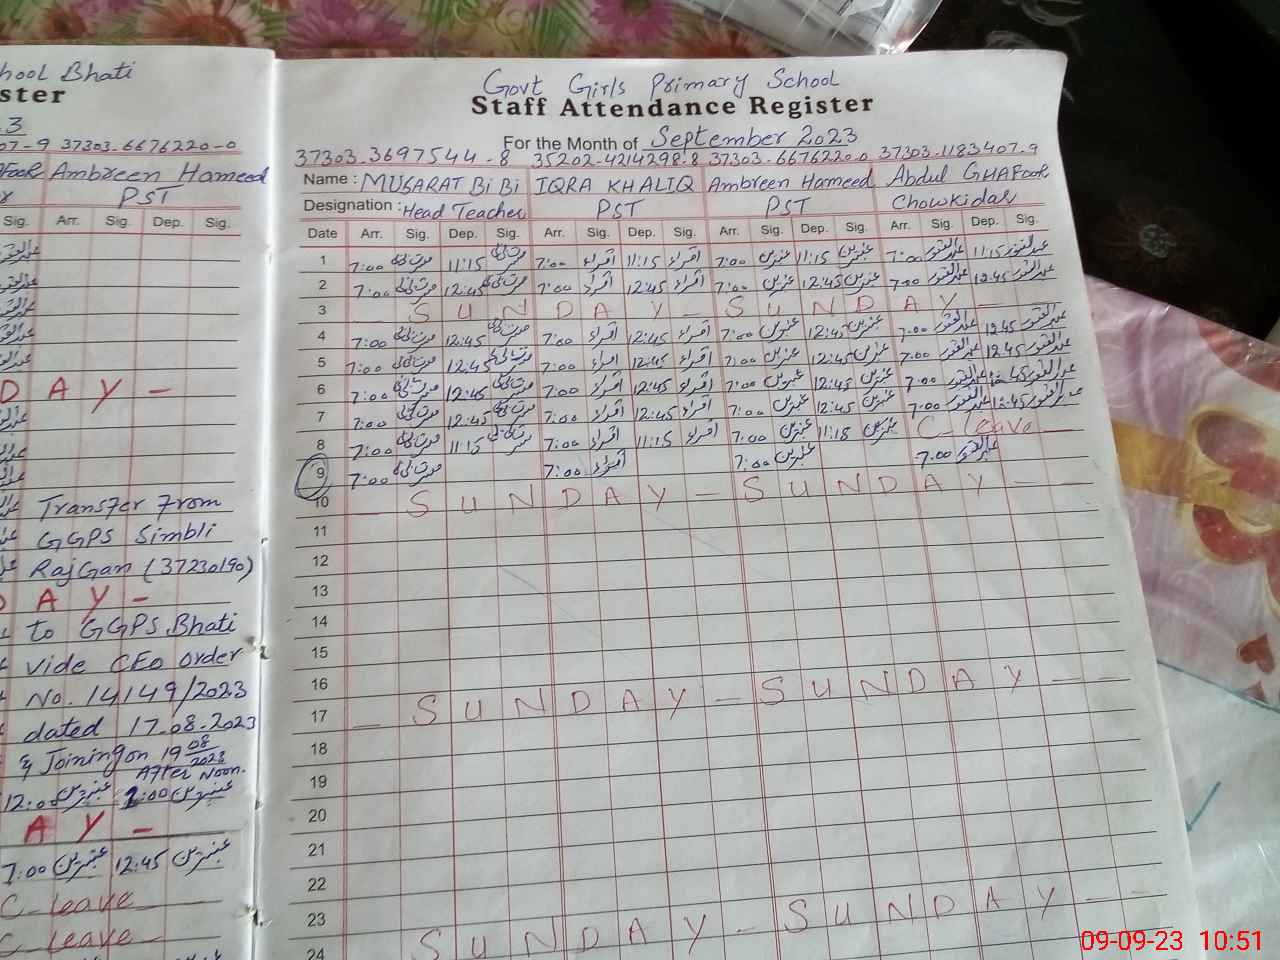 hool Bhati
ster
.3
07-9 37303-6676220-0
Ambreen Hameed
PST
Sig. Arr. Sig. Dep. Sig.
D A Y -
Transfer From
GGPS Simbli
RajGan (37230190)
A Y -
to GGPS Bhati
vide CEO order
No. 14149/2023
dated 17.08-2023
& Joining on 19 08
2023
After Noon.
12:00 عنبرین 2:00 عنبرین
A Y -
7:00 عنبرین 12:45 عنبرین
C-leave
C-leave
Govt Girls Primary School
Staff Attendance Register
For the Month of September 2023
37303-3697544-8 35202-4214298-8 37303-6676220-0 37303-1183407-9
Name : MUSARAT Bi Bi IQRA KHALIQ Ambreen Hameed Abdul GHAFOOR
Designation : Head Teacher PST PST Chowkidar
Date Arr. Sig. Dep. Sig. Arr. Sig. Dep. Sig. Arr. Sig. Dep. Sig. Arr. Sig. Dep. Sig.
1 7:00 11:15 7:00 اقراء 11:15 اقراء 7:00 عنبرین 11:15 عنبرین 7:00 عبدالغفور 11:15 عبدالغفور
2 7:00 12:45 7:00 اقراء 12:45 اقراء 7:00 عنبرین 12:45 عنبرین 7:00 عبدالغفور 12:45 عبدالغفور
3 - S U N D A Y - S U N D A Y -
4 7:00 12:45 7:00 اقراء 12:45 اقراء 7:00 عنبرین 12:45 عنبرین 7:00 عبدالغفور 12:45 عبدالغفور
5 7:00 12:45 7:00 اقراء 12:45 اقراء 7:00 عنبرین 12:45 عنبرین 7:00 عبدالغفور 12:45 عبدالغفور
6 7:00 12:45 7:00 اقراء 12:45 اقراء 7:00 عنبرین 12:45 عنبرین 7:00 عبدالغفور 12:45 عبدالغفور
7 7:00 12:45 7:00 اقراء 12:45 اقراء 7:00 عنبرین 12:45 عنبرین 7:00 عبدالغفور 12:45 عبدالغفور
8 7:00 11:15 7:00 اقراء 11:15 اقراء 7:00 عنبرین 11:15 عنبرین C-leave
9 7:00 7:00 اقراء 7:00 عنبرین 7:00 عبدالغفور
10 - S U N D A Y - S U N D A Y -
11
12
13
14
15
16
17 - S U N D A Y - S U N D A Y - -
18
19
20
21
22
23
24 S U N D A Y - S U N D A Y - -
09-09-23 10:51